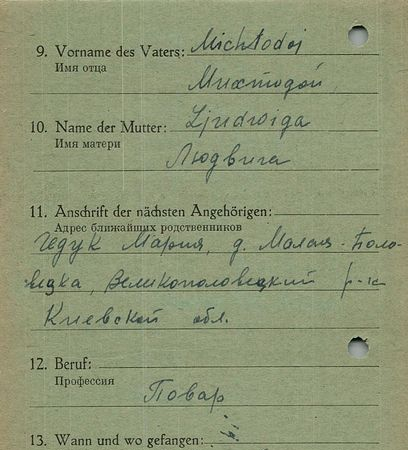 9. Vorname des Vaters: Michtodoj
Имя отца
Михтодой
10. Name der Mutter: Ljudwiga
Имя матери
Людвига
11. Anschrift der nächsten Angehörigen:
Адрес ближайших родственников
Гедук Мария, д. Малая-Поло-
вецка, Великополовецкий р-н
Киевской обл.
12. Beruf:
Профессия
Повар
13. Wann und wo gefangen: